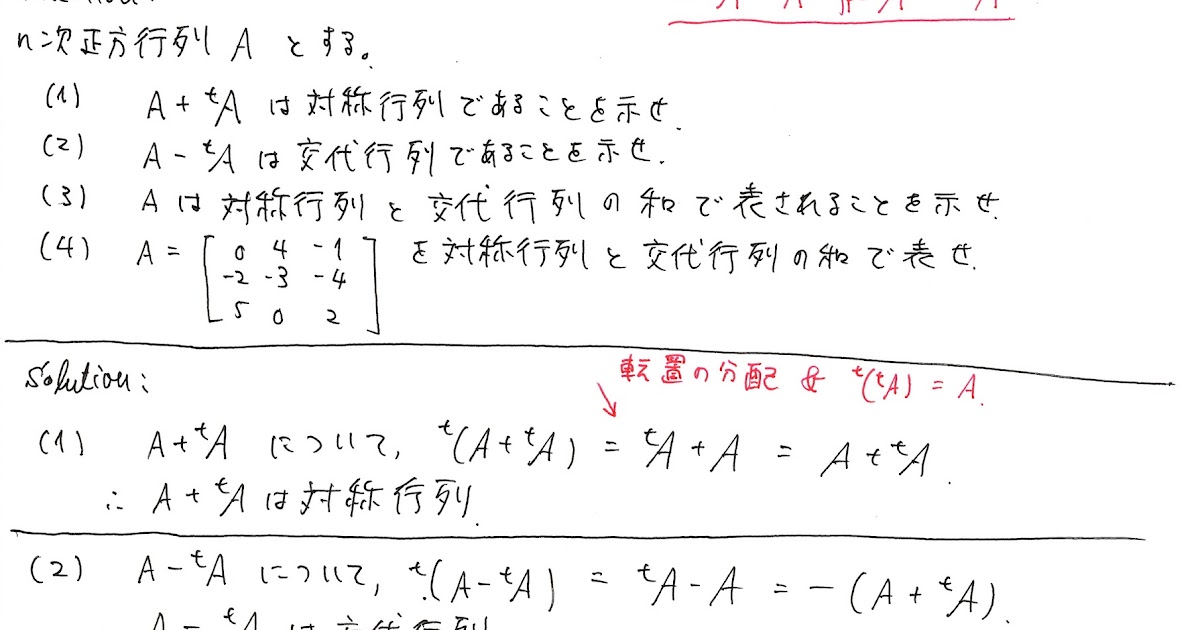 n次正方行列 A とする。
(1) A + ᵗA は対称行列であることを示せ.
(2) A - ᵗA は交代行列であることを示せ.
(3) A は対称行列と交代行列の和で表されることを示せ.
(4) A = [0 4 -1
-2 -3 -4
5 0 2] を対称行列と交代行列の和で表せ.
Solution:
転置の分配 & ᵗ(ᵗA) = A.
(1) A + ᵗA について, ᵗ(A + ᵗA) = ᵗA + A = A + ᵗA.
∴ A + ᵗA は対称行列.
(2) A - ᵗA について, ᵗ(A - ᵗA) = ᵗA - A = -(A + ᵗA).
A - ᵗA は交代行列